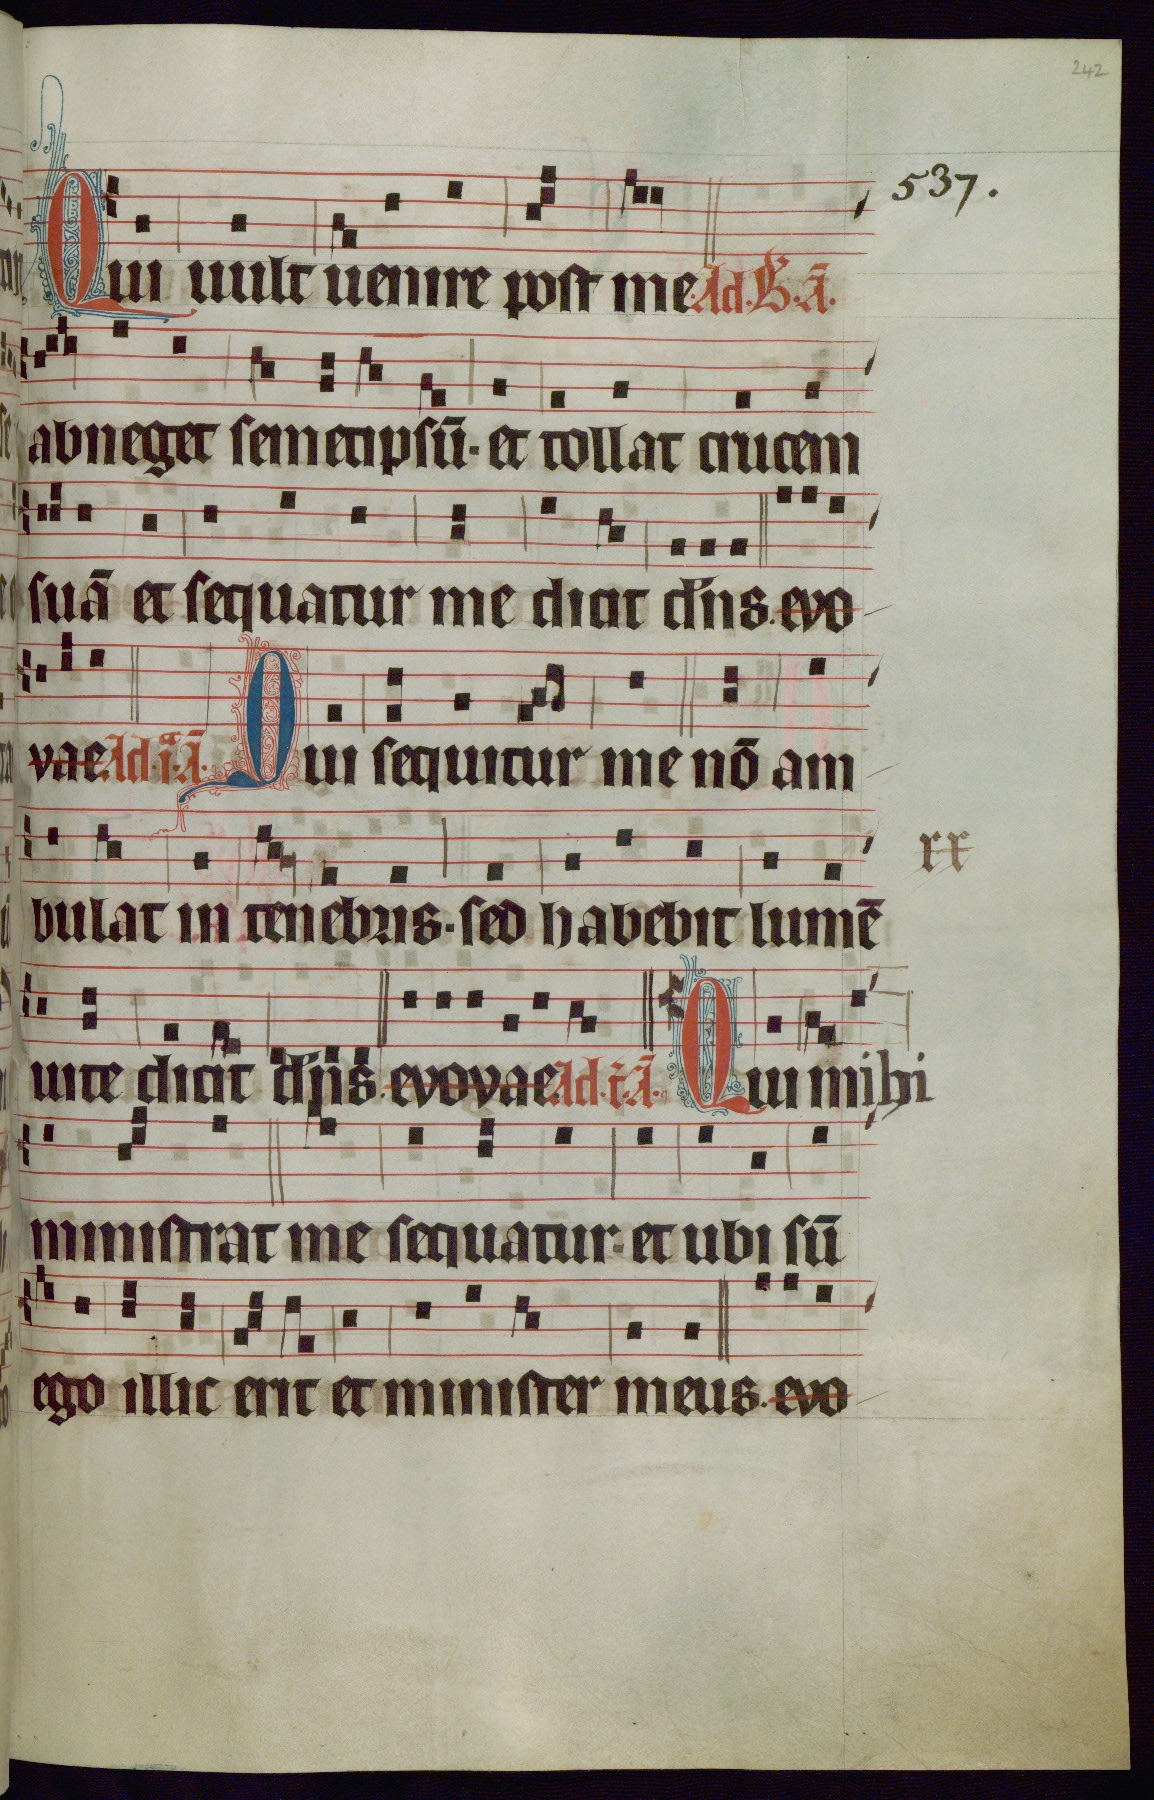 242
537.
Qui uult uenire post me Ad .B. Ā.
abneget semetipsū. et tollat crucem
suā et sequatur me dicit dn̄s. evo
vae. Ad .i.ᵃ Ā. Qui sequitur me nō am
bulat in tenebris. sed habebit lumē
xx
uite dicit dn̄s. evovae. Ad .t̄. Ā. Qui mihi
ministrat me sequatur. et ubi sū
ego illic erit et minister meus. evo